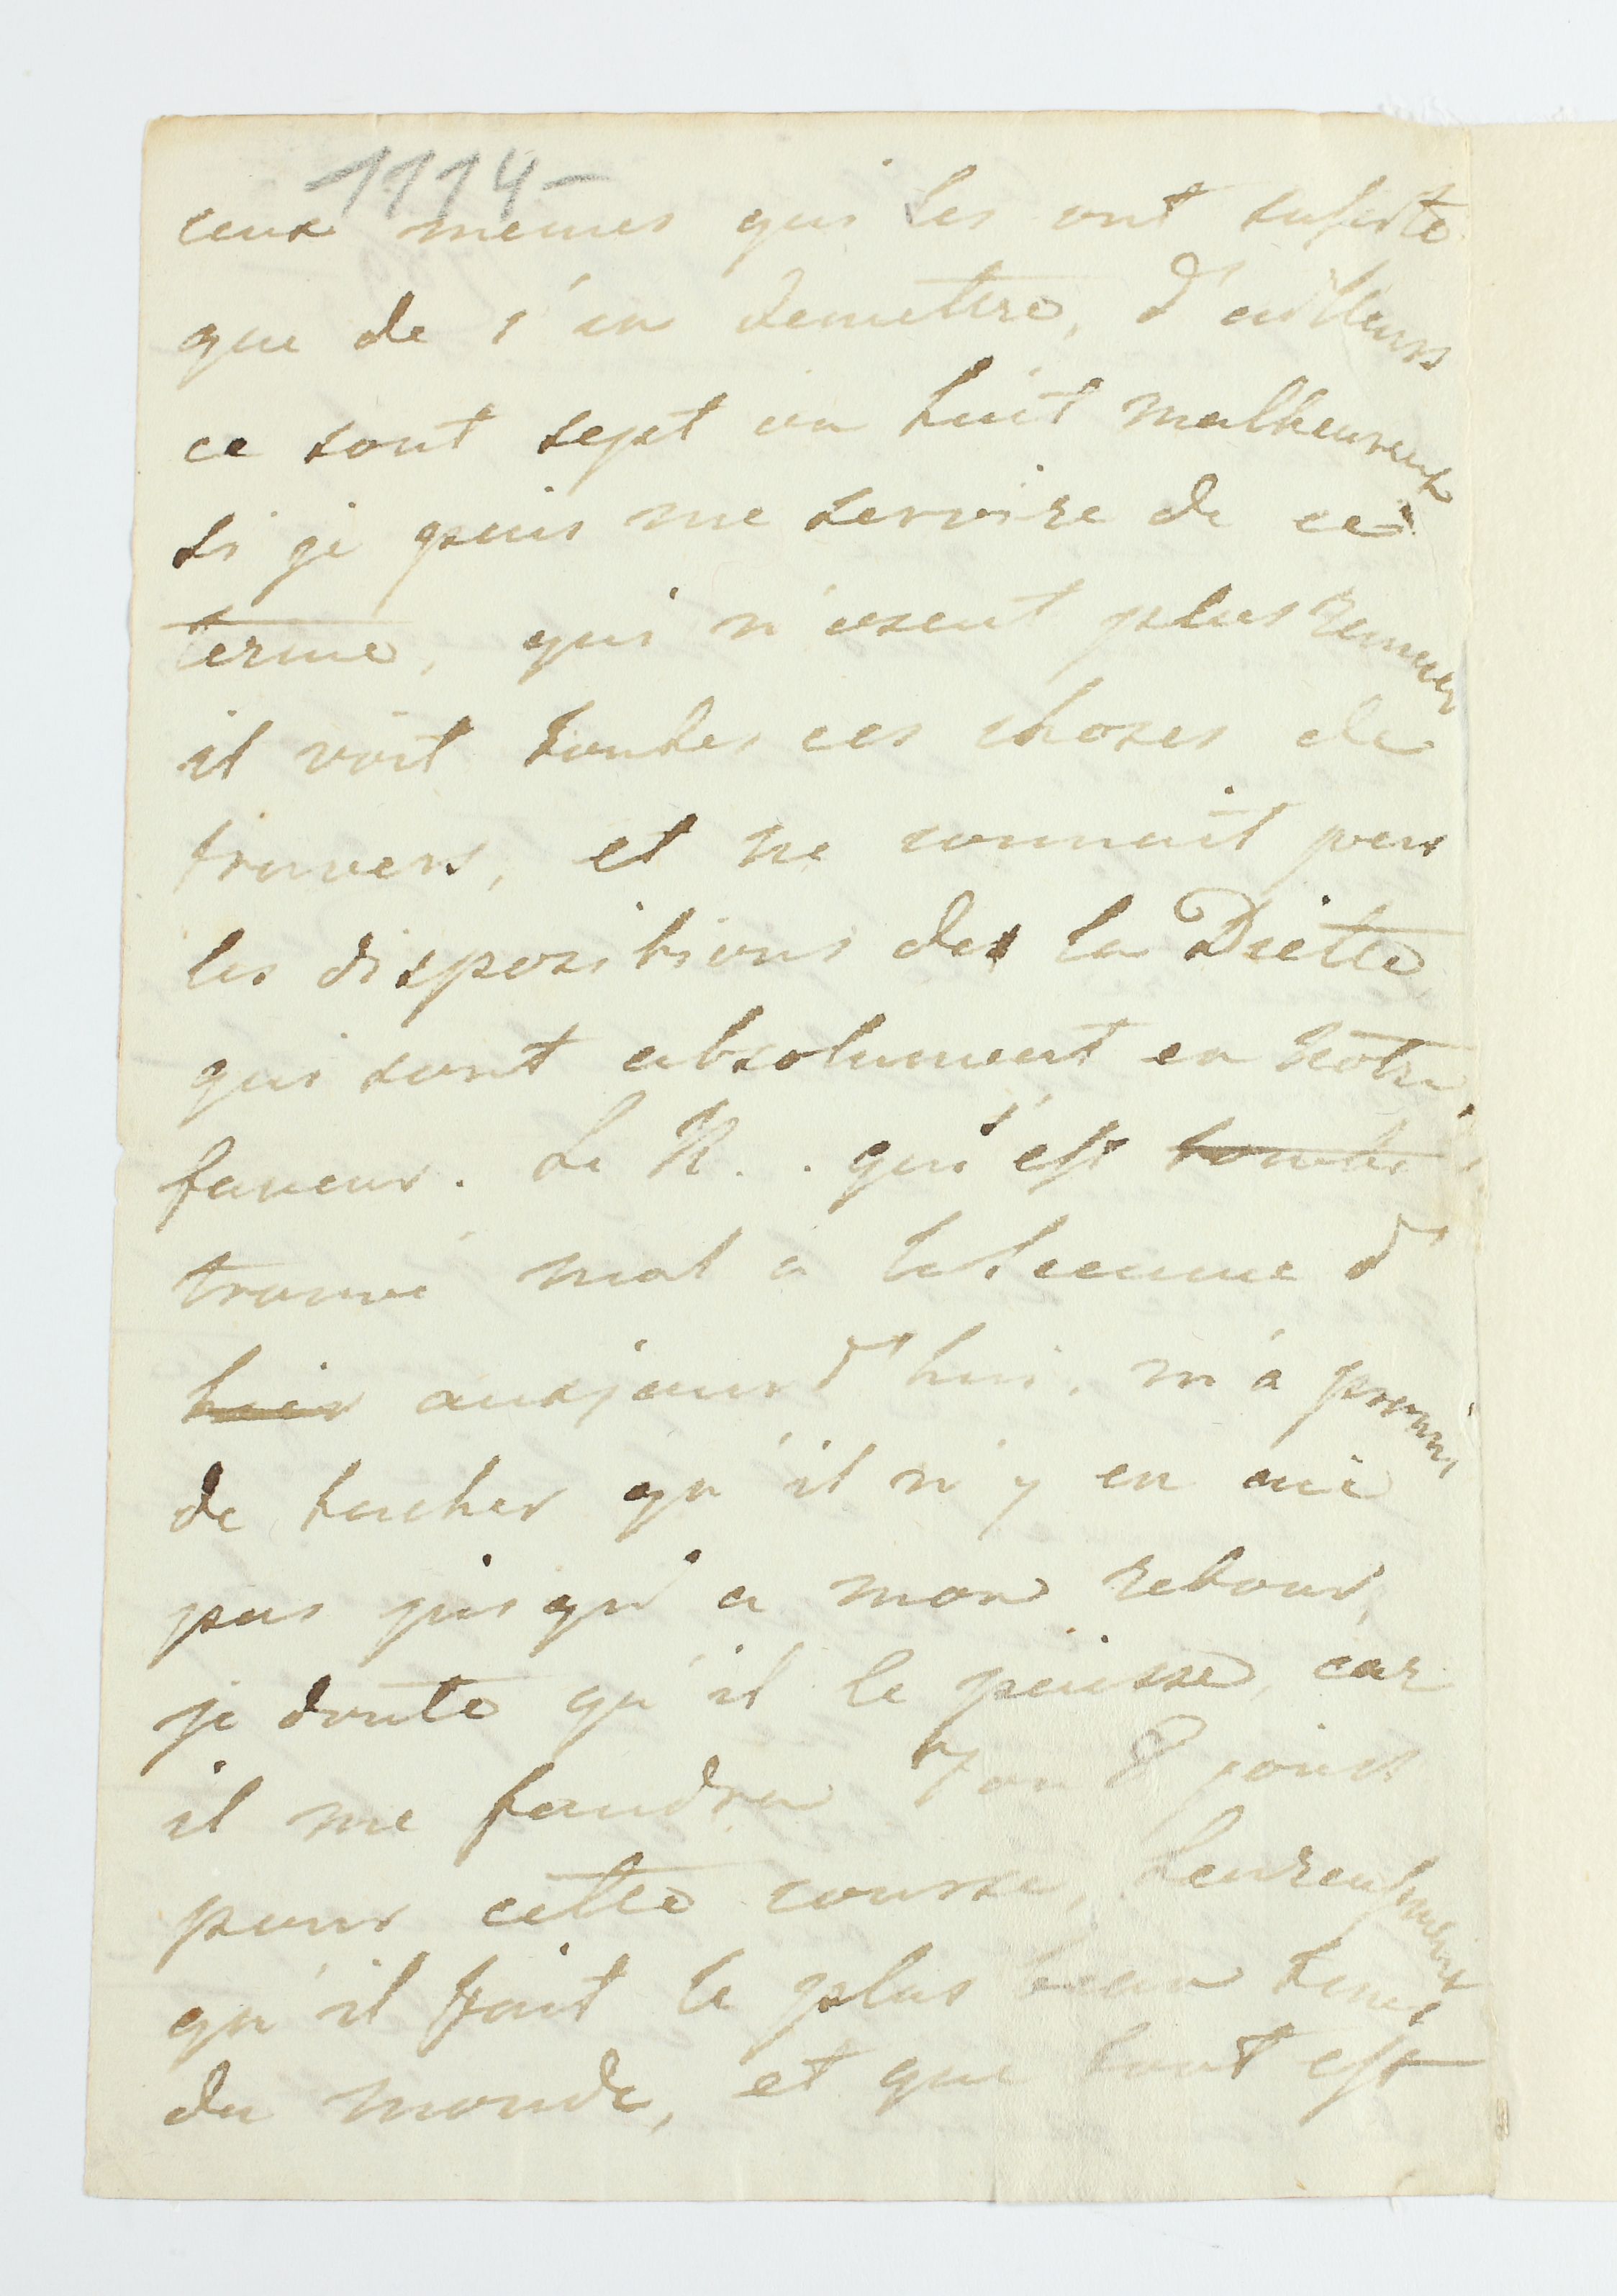 1114-
ceux memes qui les ont
que de s'en demettre, d'ailleurs
ce sont sept ou huit malheureux
si je puis me servire de ce
terme, qui n'osent plus remuer
il voit toutes ces choses de
travers, et ne connait pas
les dispositions de la Diette
qui sont absolument en notre
faveur. Le R.. qui s'est
trouvé mal a la seeance d'
hier aujourd'hui, m'a promis
de tacher qu'il n'y en aie
pas jusqu'a mon retour,
je doute qu'il le puisse, car
il me faudra 7 ou 8 jours
pour cette course, heureusement
qu'il fait le plus beau tems
du monde, et que tout est